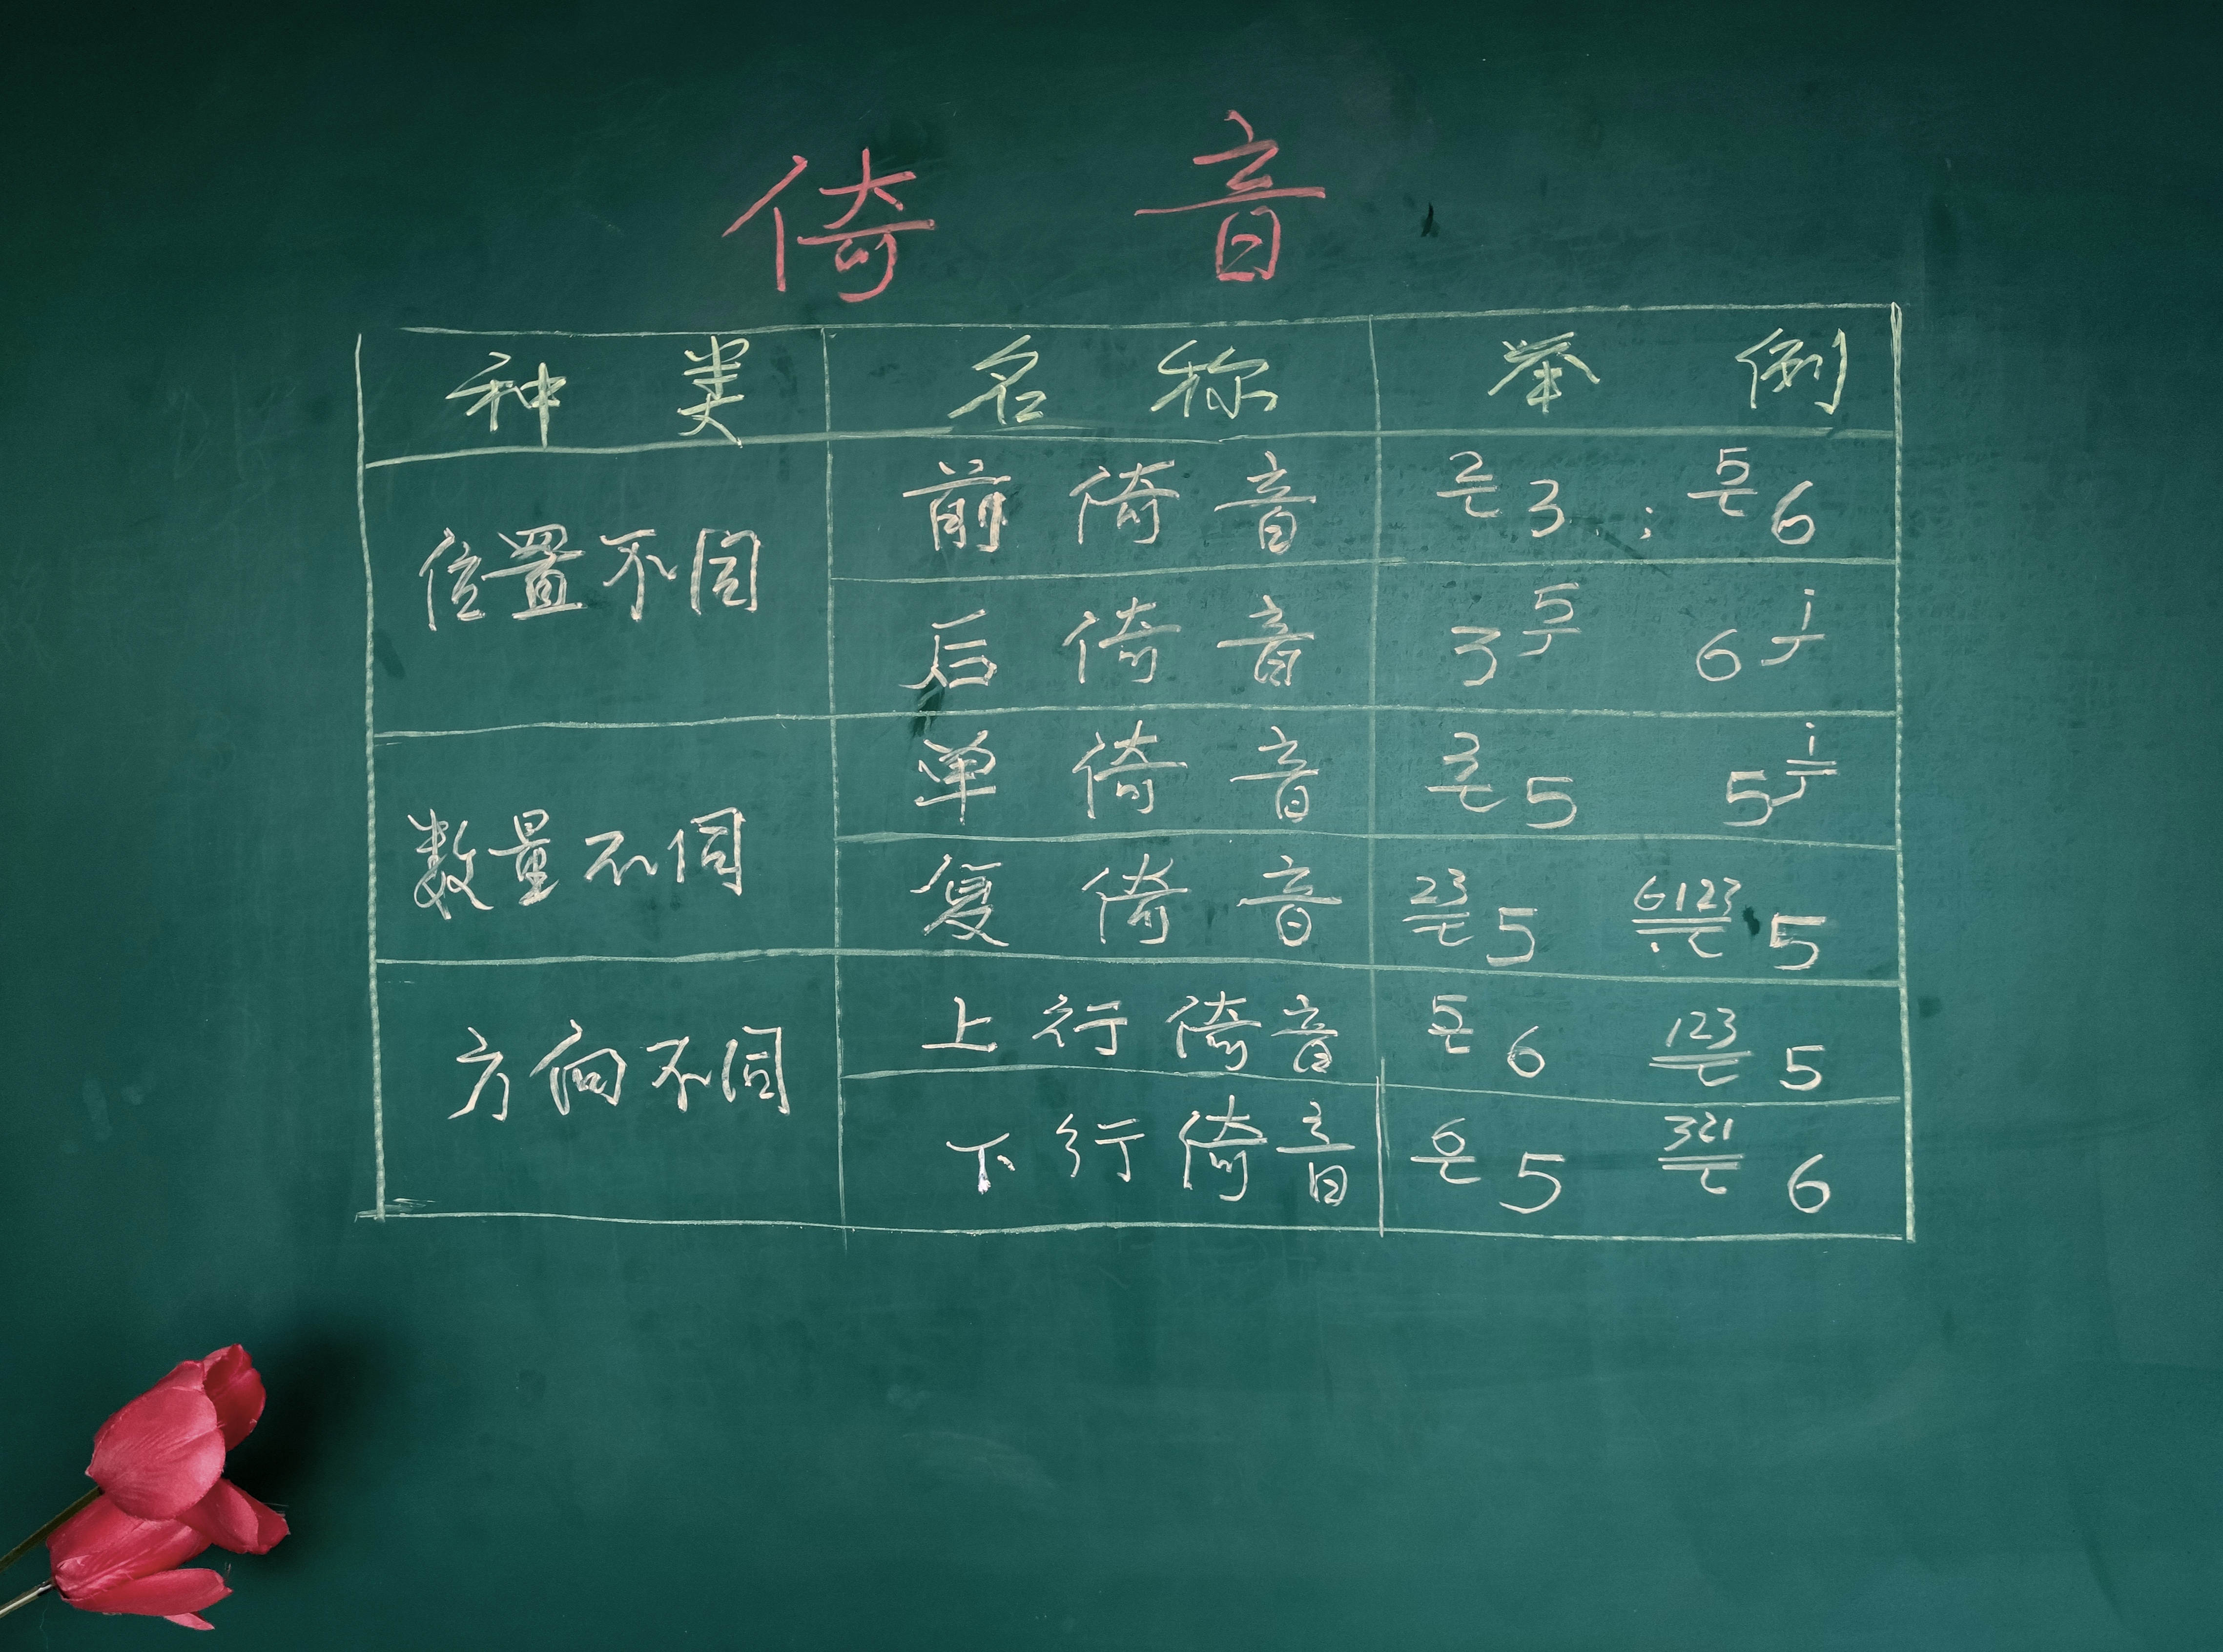 倚 音
种 类 名 称 举 例
位置不同
前 倚 音 2 3 ; 5 6
后 倚 音 3 5 6 i
数量不同
单 倚 音 3 5 5 i
复 倚 音 23 5 6123 5
方向不同
上 行 倚 音 5 6 123 5
下 行 倚 音 6 5 321 6